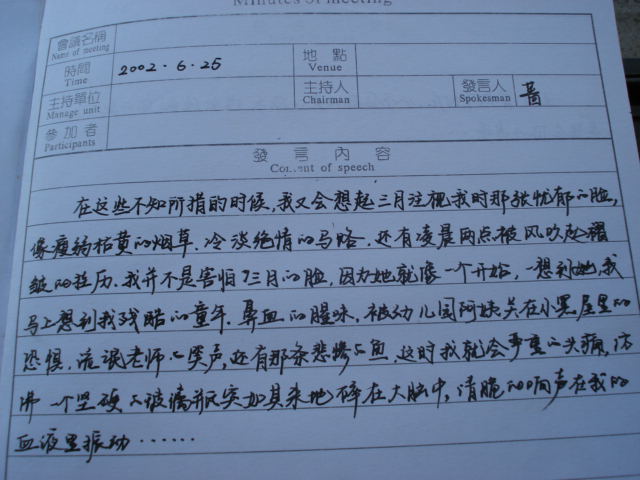 Minutes of meeting
會議名稱
Name of meeting
時間
Time
2002.6.25
地點
Venue
主持單位
Manage unit
主持人
Chairman
發言人
Spokesman
蔷
參加者
Participants
發言內容
Content of speech
在这些不知所措的时候,我又会想起三月注视我时那张忧郁的脸,
像瘦病枯黄的烟草.冷淡绝情的马路.还有凌晨两点被风吹起褶
皱的经历.我并不是害怕了三月的脸,因为她就像一个开始,一想到她,我
马上想到我残酷的童年.鼻血的腥味.被幼儿园阿姨关在小黑屋里的
恐惧.流氓老师的哭声,还有那条悲惨的鱼.这时我就会严重的头痛,仿
佛一个坚硬的玻璃瓶突如其来地碎在大脑中,清脆的响声在我的
血液里振动······